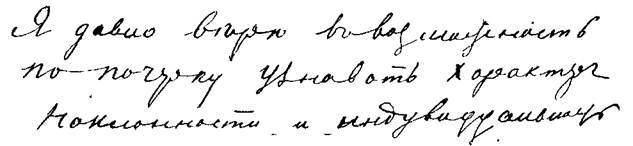 Я давно верю в возможность
по-почерку узнавать характер
наклонности и индувидуальность